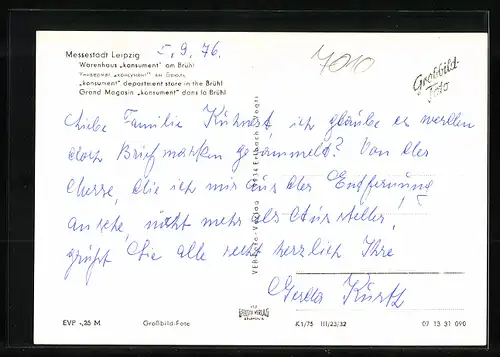 Messestadt Leipzig
Warenhaus „konsument" am Brühl
Универмаг „консумент" ам Брюль
„konsument" department store in the Brühl
Grand Magasin „konsument" dans la Brühl
5.9.76.
7010
Großbild-
Foto
Liebe Familie Kühnert, ich glaube es werden
doch Briefmarken gesammelt? Von der
Messe, die ich mir aus der Entfernung
ansehe, nicht mehr als Aussteller!,
grüßt Sie alle recht herzlich Ihre
Gerda Kurth
9934 Erlbach i. Vogtl.
EVP -,25 M
Großbild-Foto
K1/75 III/23/32
07 13 31 090